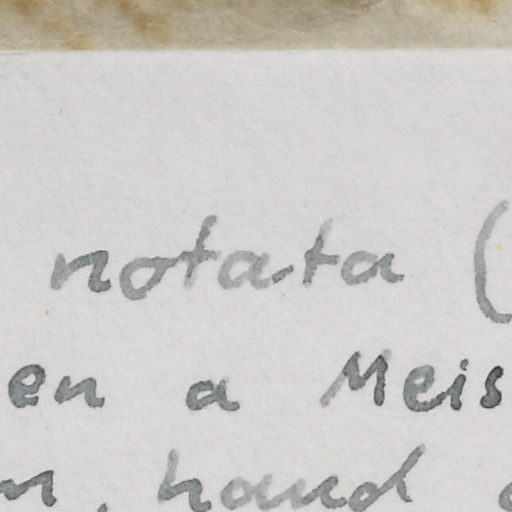 notata (
en a Meis
m, haud